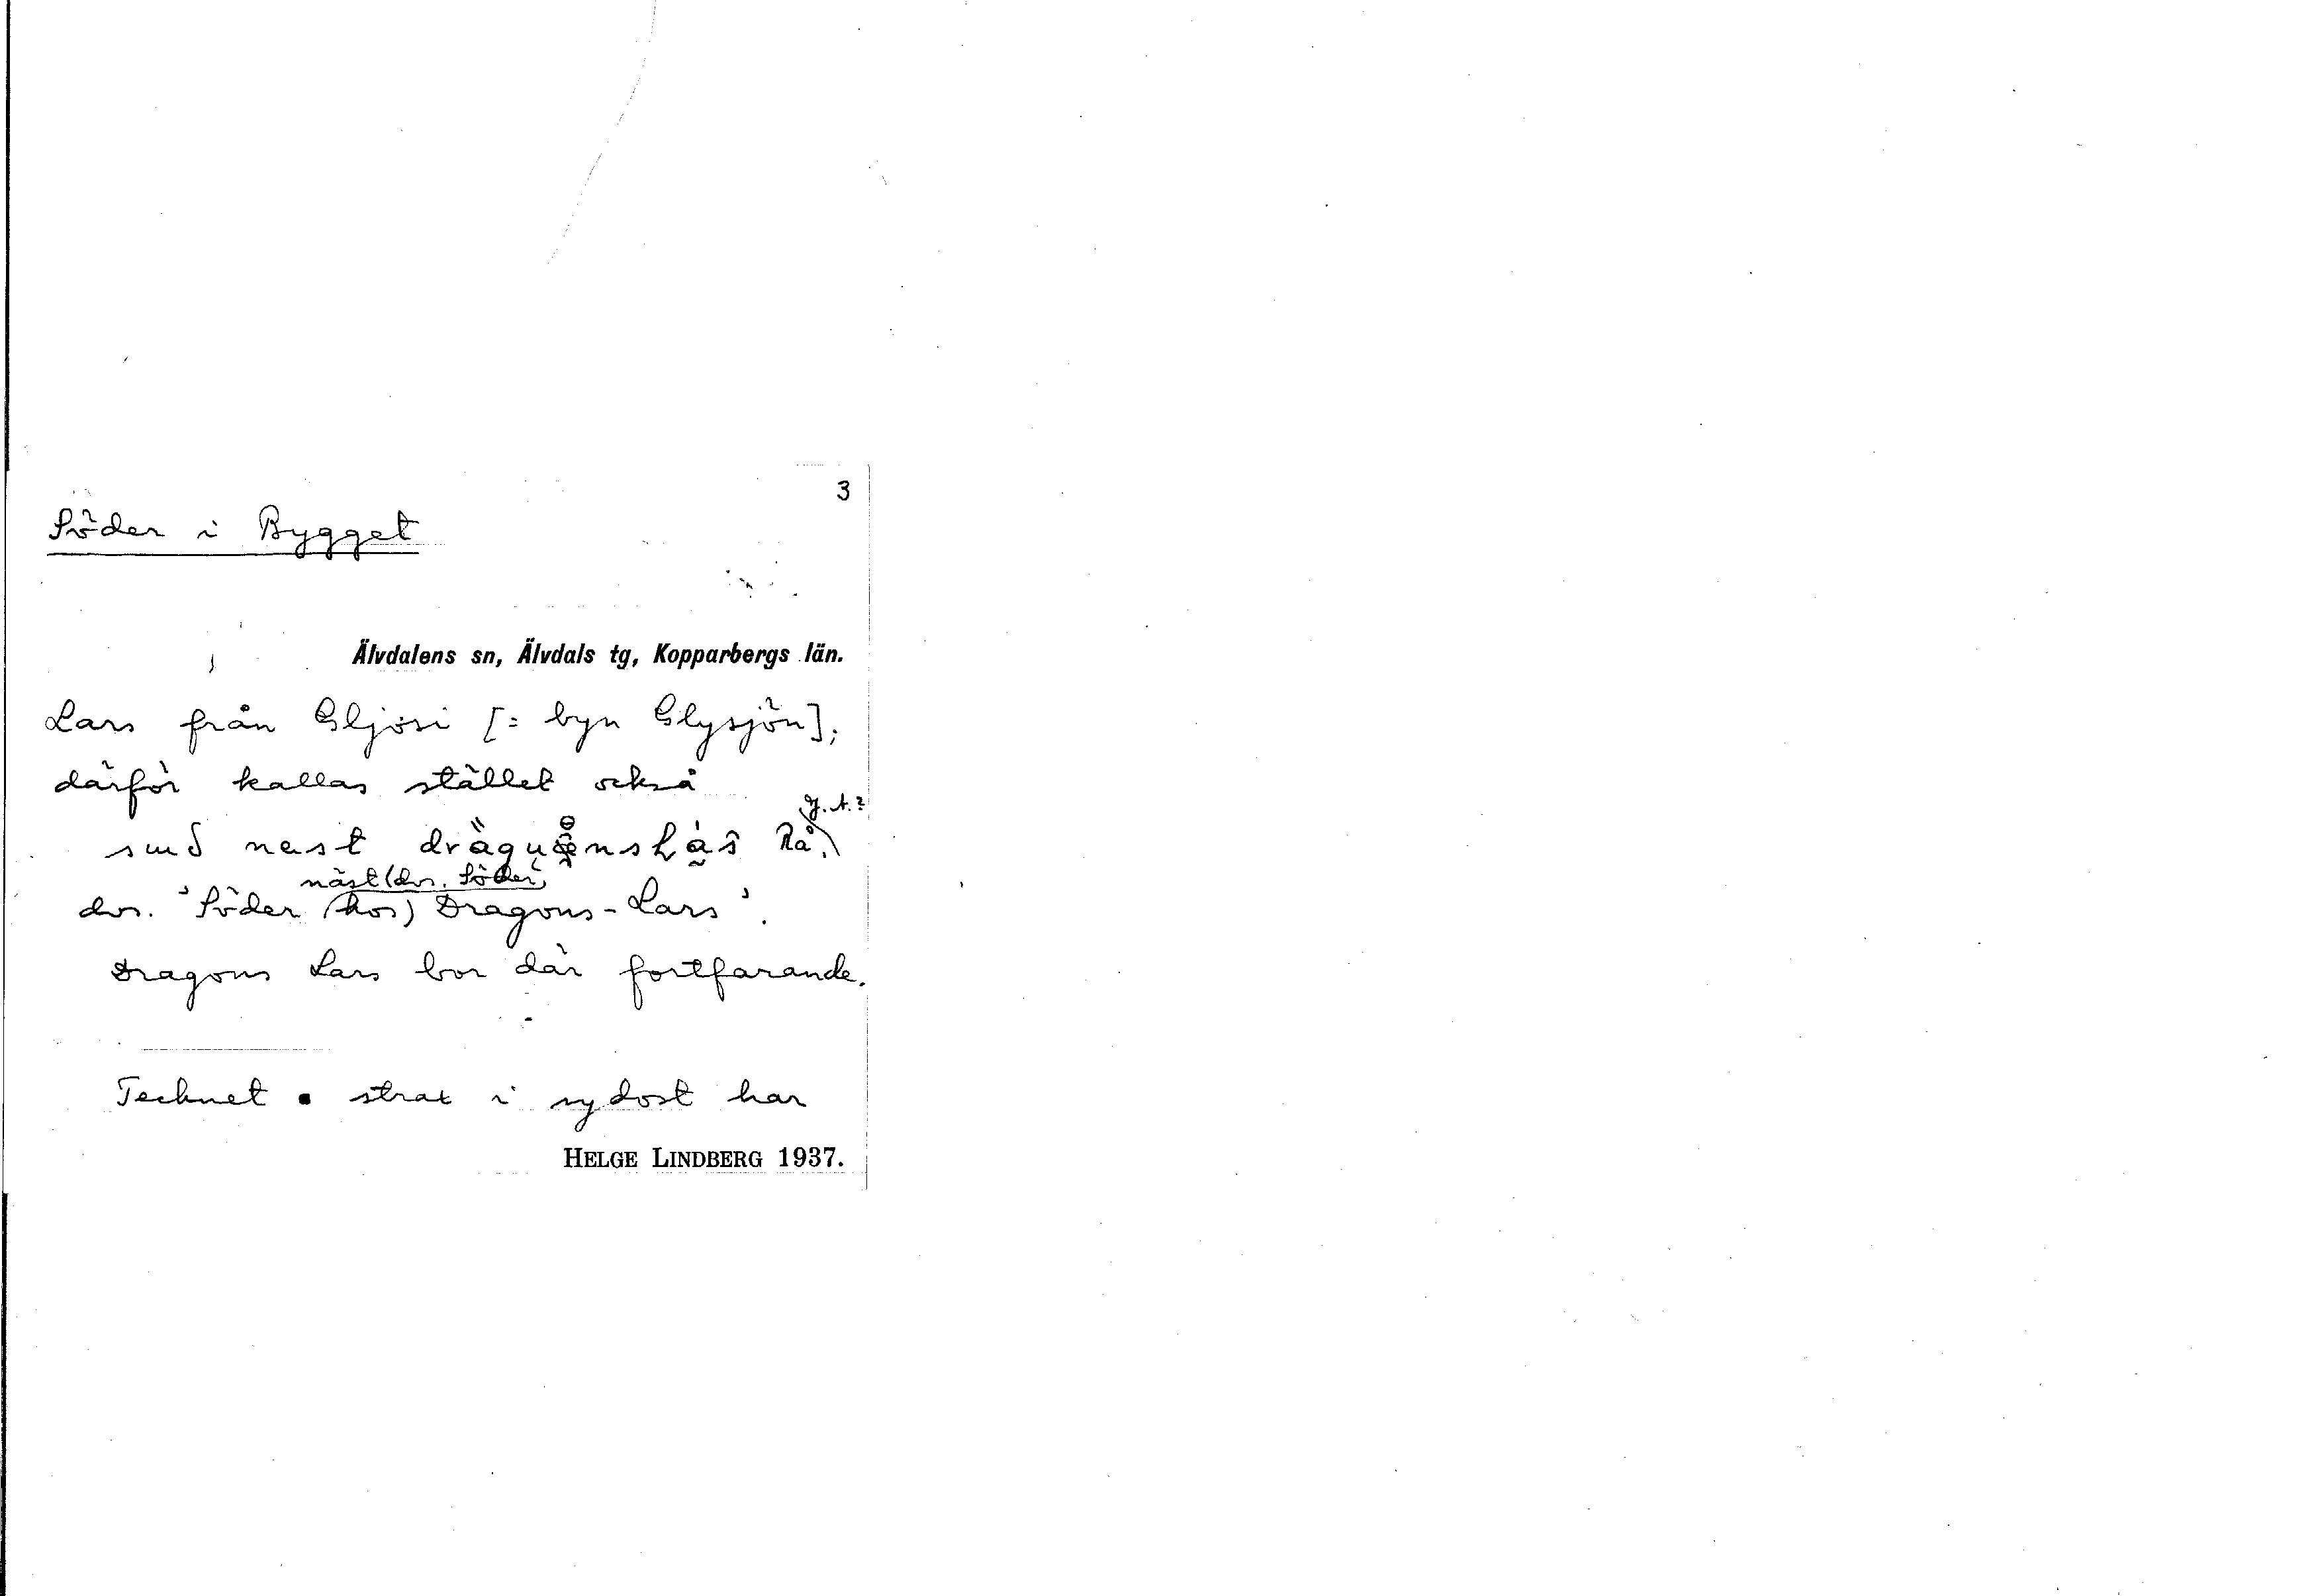 3
Söder i Bygget
Älvdalens sn, Älvdals tg, Kopparbergs län.
Lars från Gljosi [= byn Glysjön];
därför kallas stället också
J. A.?
suð nest Rå.
näst (dvs. Söder
dvs. 'Söder (hos) Dragons-Lars'.
Dragons Lars bor där fortfarande.
Tecknet ● strax i sydost har
HELGE LINDBERG 1937.